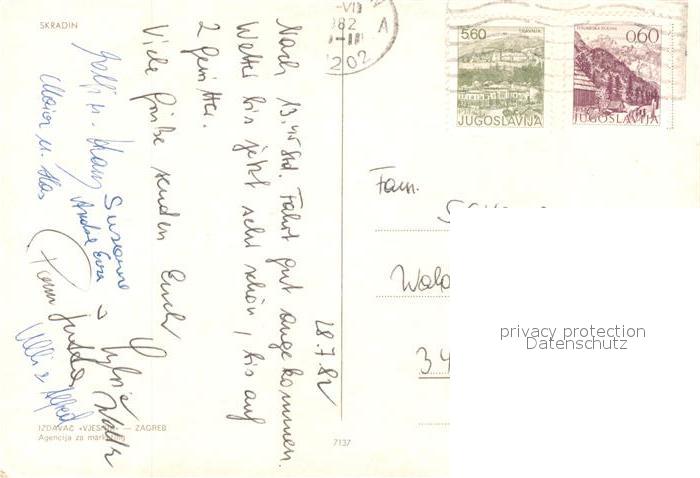 SKRADIN
28.7.82
Nach 13,45 Std. Fahrt gut angekommen.
Wetter bis jetzt sehr schön, bis auf
2 Gewitter.
Viele Grüße senden Euch
Sylvia
Susanne
Jutta
Ulli & Alfred
-VII
982 A
202
5.60
JUGOSLAVIJA
0.60
JUGOSLAVIJA
Fam.
34
privacy protection
Datenschutz
IZDAVAČ «VJESNIK» — ZAGREB
Agencija za marketing
7137